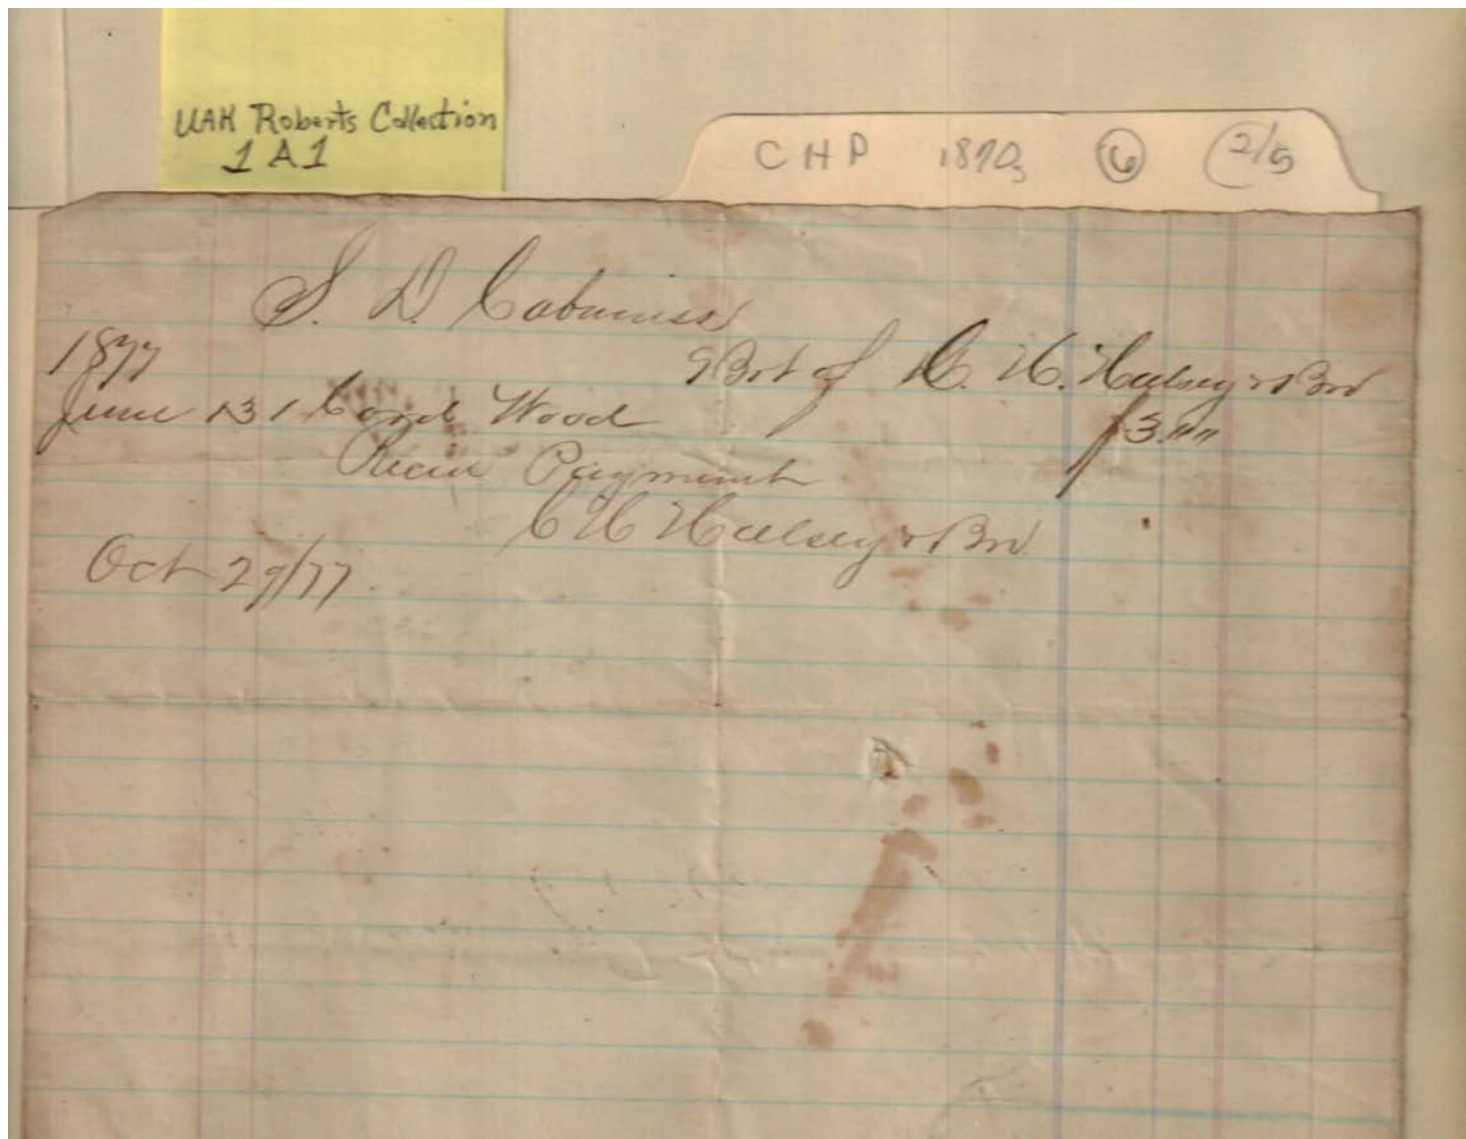 UAH Roberts Collection
1 A 1
C H P 1870s 6 (2/5
S. D. Cabaniss
1877
Bot of C. H. Halsey & Bro
June 13 1 Cord Wood $3.""
Payment
C H Halsey & Bro.
Oct 29/77.